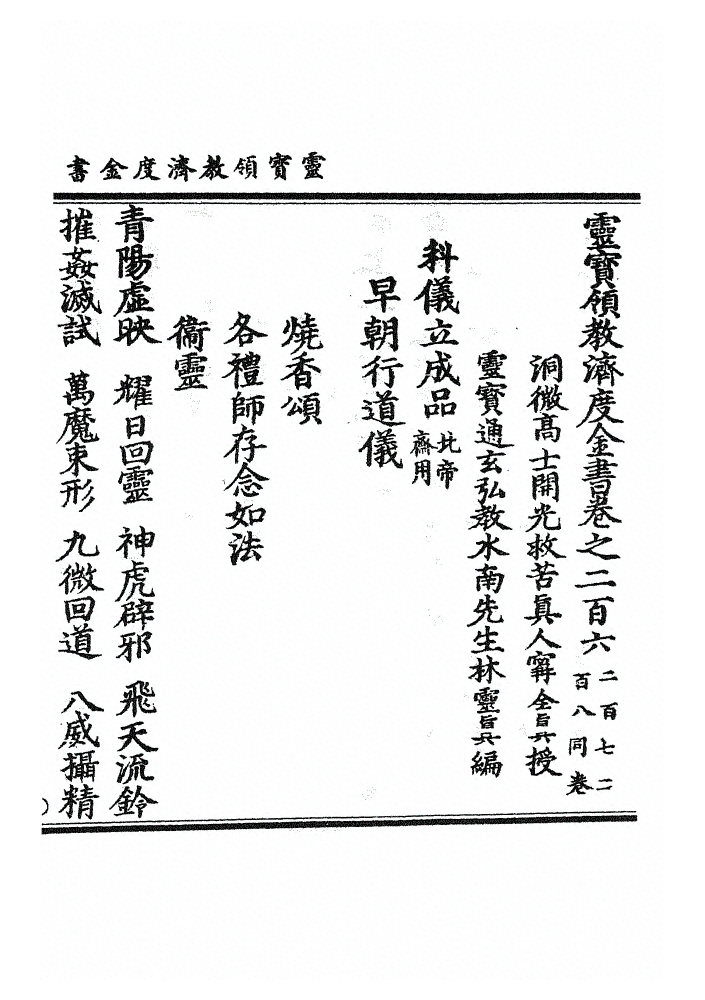 靈寳領教濟度金書
靈寳領教濟度金書卷之二百六 二百七二百八同卷
洞微髙士開光救苦眞人寗全眞授
靈寳通玄弘教水南先生林靈眞編
科儀立成品 北帝齋用
早朝行道儀
燒香頌
各禮師存念如法
衞靈
青陽虛映 耀日回靈 神虎辟邪 飛天流鈴
摧姦滅試 萬魔束形 九微回道 八威攝精